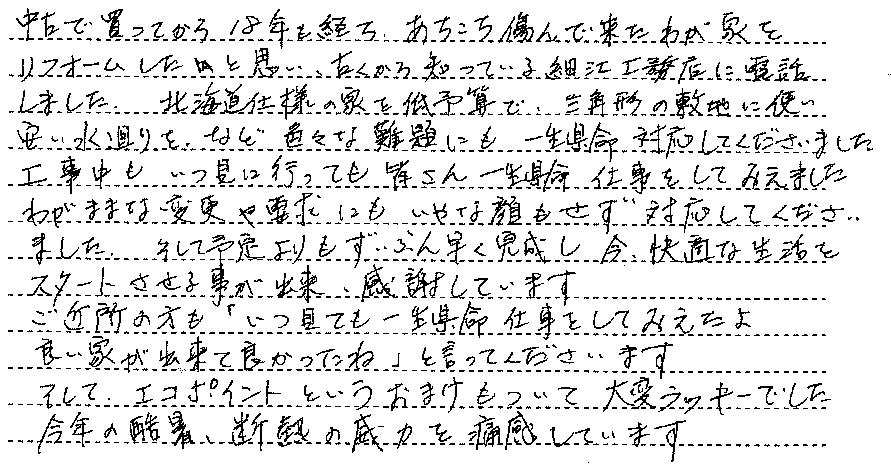 中古で買ってから18年を経ち、あちこち傷んで来たわが家を
リフォームしたいと思い、古くから知っている細江工務店に電話
しました。 北海道仕様の家を低予算で、三角形の敷地に使い
安い水廻りを、など 色々な難題にも 一生県命 対応してくださいました
工事中も いつ見に行っても 皆さん 一生県命 仕事をしてみえました
わがままな変更や要求にも いやな顔もせず 対応してくださ
ました。 そして予定よりもずいぶん早く完成し 今、快適な生活を
スタートさせる事が出来、感謝しています
ご近所の方も「いつ見ても一生県命 仕事をしてみえたよ
良い家が出来て良かったね」と言ってくださいます
そして、エコポイントというおまけもついて 大変ラッキーでした
今年の酷暑、断熱の威力を痛感しています